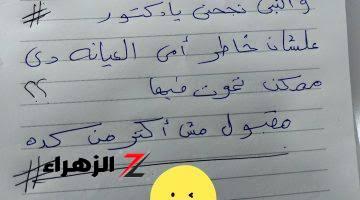 والنبي نجحني يا دكتور #
علشان خاطر أمي العيانه دي
ممكن تموت فيها ؟؟
مقبول مش أكتر من كده
#
الزهراء